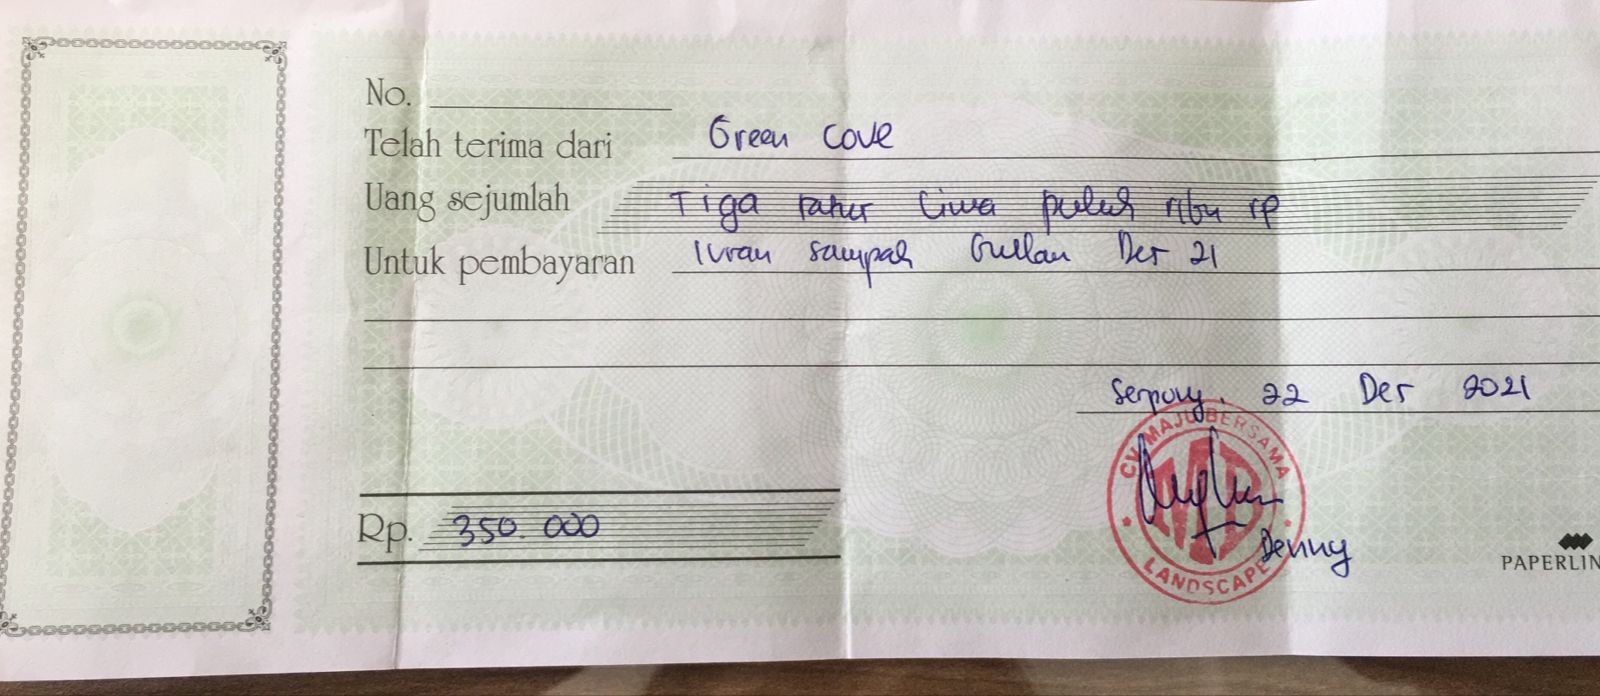 No.
Telah terima dari Green Cove
Uang sejumlah Tiga ratus lima puluh ribu rp
Untuk pembayaran Iuran sampah Bullan Des 21
Serpong, 22 Des 2021
CV MAJU BERSAMA
MB
LANDSCAPE
Denny
Rp. 350.000
PAPERLIN